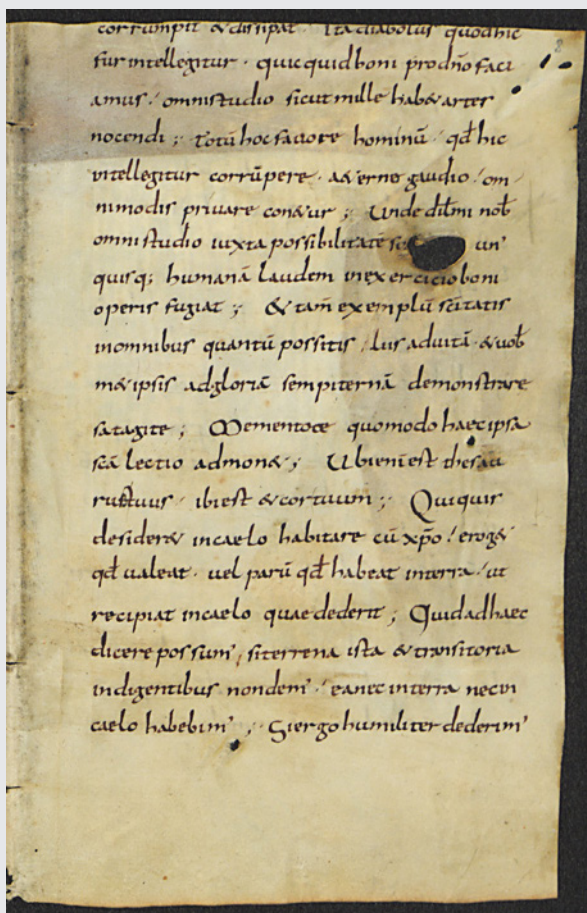 corrumpit & dissipat · Ita diabolus quod hic
fur intellegitur · quicquid boni pro dn̄o faci
amus · omni studio sicut mille hab& artes
nocendi ; Totū hoc favore hominū · qd̄ hic
intellegitur corrūpere · a& erne gaudio · om
nimodis privare con&ur ; Unde dil̄mi nob̄
omni studio iuxta possibilitatē un'
quisq; humanā laudem in exercicio boni
operis fugiat ; & tam̄ exemplū sc̄itatis
in omnibus quantū possitis · lus ad uitā · & uob̄
m& ipsis ad gloriā sempiternā demonstrare
satagite ; Mementote quomodo haec ipsa
scā lectio admon& ; Ubi enī est thesau
rus tuus · ibi est & cor tuum ; Qui quis
desider& in caelo habitare cū xp̄o · erog&
qd̄ ualeat · uel parū qd̄ habeat in terra · ut
recipiat in caelo quae dederit ; Quid ad haec
dicere possum' si terrena ista & transitoria
indigentibus non dem' · ea nec in terra nec in
caelo habebim' ; Si ergo humiliter dederim'